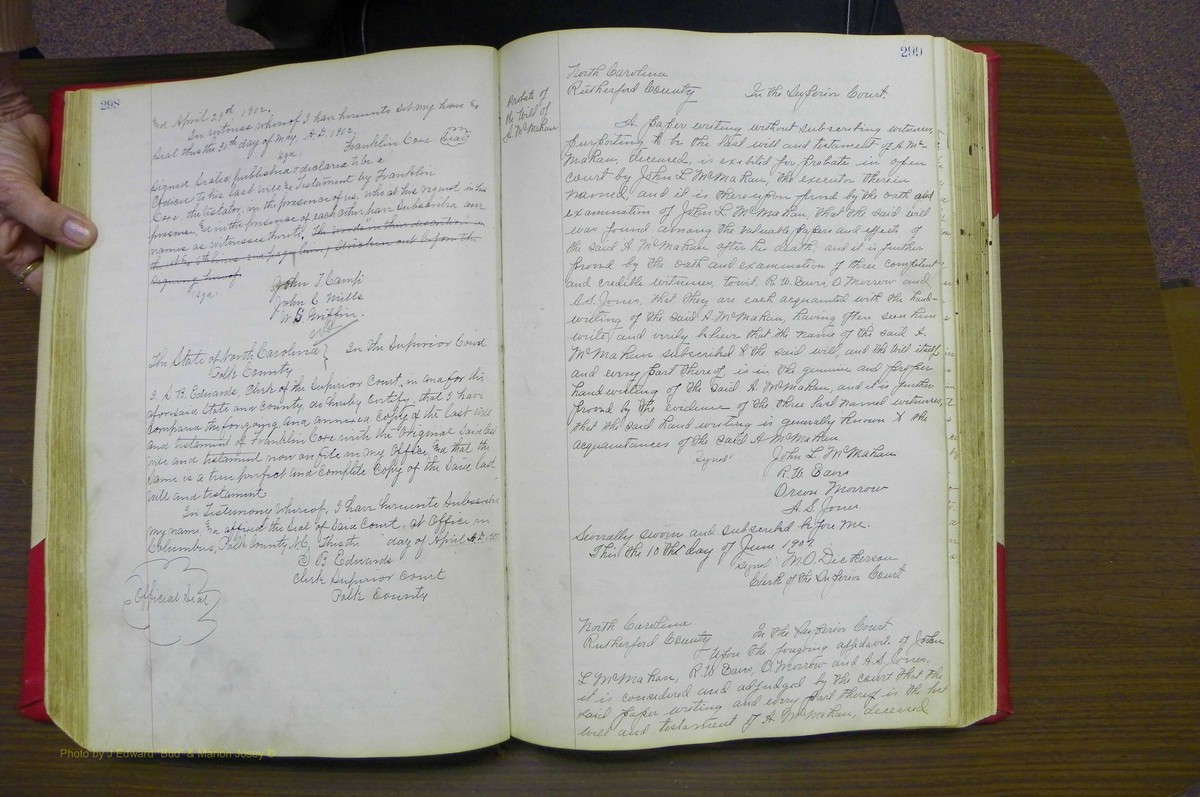 298
and April 29th 1902.
In witness whereof I han hereunto set my hand &
seal this the 30th day of May, A.D. 1902.
sgn. Franklin Coxe (Seal)
Signed Sealed published & declared to be a
Codicil to his last will & testament by Franklin
Coxe the testator, in the presence of us, who at his request in his
presence & in the presence of each other han subscribed our
names as witnesses thereto. The words in
signing hereof
sgn John T Camp
John C Mills
W. G. Griffin.
The State of North Carolina } In the Superior Court
Polk County
I. S. B. Edwards, Clerk of the Superior Court, in and for the
aforesaid State and County, do hereby certify, that I have
compared the forgoing and annexed Copy of the last will
and testament of Franklin Coxe with the Original Said last
will and testament now on file in my Office, and that the
same is a true perfect and complete copy of the said last
will and testament
In Testimony whereof, I have hereunto Subscribed
my name, and affixed the Seal of Said Court, at Office in
Columbus, Polk County, N.C. This the day of April A.D. 190
S B Edwards
Clerk Superior Court
Polk County
Official Seal
299
Probate of
the Will of
A McMahan
North Carolina
Rutherford County In the Superior Court.
A paper writing without subscribing witnesses,
purporting to be the last will and testament of A Mc-
Mahan, deceased, is exibited for probate in open
court by John L McMahan, the executor therein
named, and it is thereupon proved by the oath and
examination of John L McMahan, that the said will
was found among the valuable papers and effects of
the said A McMahan after his death, and it is further
proved by the oath and examination of three competent
and credible witnesses, towit: R. W. Davis, O. Morrow and
A.S. Jones, that they are each acquainted with the hand-
writing of the said A McMahan, having often seen him
write, and verily believe that the name of the said A.
McMahan subscribed to the said will, and the will itself,
and every part thereof is in the genuine and proper
handwriting of the said A McMahan, and it is further
proved by the evidence of the three last named witnesses,
that the said hand writing is generally known to the
acquaintances of the said A McMahan
"signed" John L McMahan
R. W. Davis
Orson Morrow
A. S. Jones.
Severally sworn and subscribed before me.
This the 10th day of June 1907.
"Signed" M. O. Dickerson
Clerk of the Superior Court
North Carolina
Rutherford County In the Superior Court
Upon the foregoing affidavit of John
L McMahan, R. W. Davis, O. Morrow and A.S. Jones.
it is considered and adjudged by the court that the
said paper writing and every part thereof is the last
will and testament of A. McMahan, deceased
Photo by J Edward "Bud" & Marion Josey ©